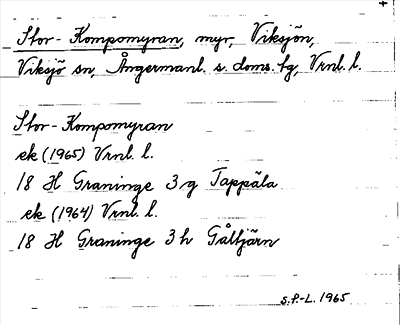 Stor-Kompomyran, myr, Viksjön,
Viksjö sn, Ångermanl. s. doms. tg, Vrnl. l.
Stor-Kompomyran
ek (1965) Vrnl. l.
18 H Graninge 3 g Tappäla
ek (1964) Vrnl. l.
18 H Graninge 3 h Gåltjärn
S.P-L. 1965